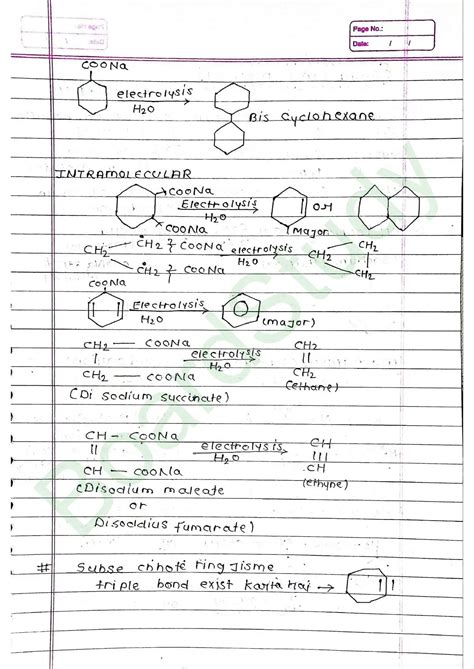 Page No.:
Date: / /
COONa
electrolysis
H2O
Bis cyclohexane
INTRAMOLECULAR
COONa
Electrolysis
H2O
OH
COONa
(major
CH2 CH2 COONa electrolysis CH2
H2O CH2
CH2 COONa CH2
COONa
Electrolysis
H2O
(major)
CH2 — COONa CH2
electrolysis
H2O
CH2 — COONa CH2
(ethane)
(Di sodium succinate)
CH - COONa CH
electrolysis
H2O
CH — COONa CH
(ethyne)
(Disodium maleate
or
Disoddius fumarate)
# Subse chhote ring jisme
triple bond exist karta hai →
BoardStudy